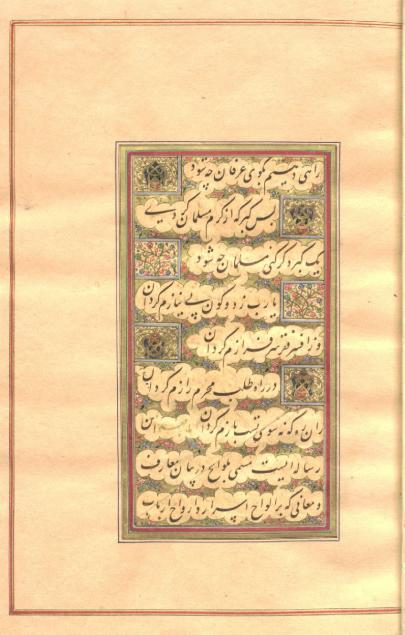 راهی دهیم بکوی عرفان چه شود
بس کبر که از کرم مسلمان کردی
یک کبر دکر کنی مسلمان چه شود
یا رب ز دو کون بی نیازم کردان
وز افسر فقر سرفرازم کردان
در راه طلب محرم رازم کردان
زان ره که نه سوی تست بازم کردان این
رساله ایست مسمی بلوایح در بیان معارف
و معانی که بر الواح اسرار و ارواح ارباب